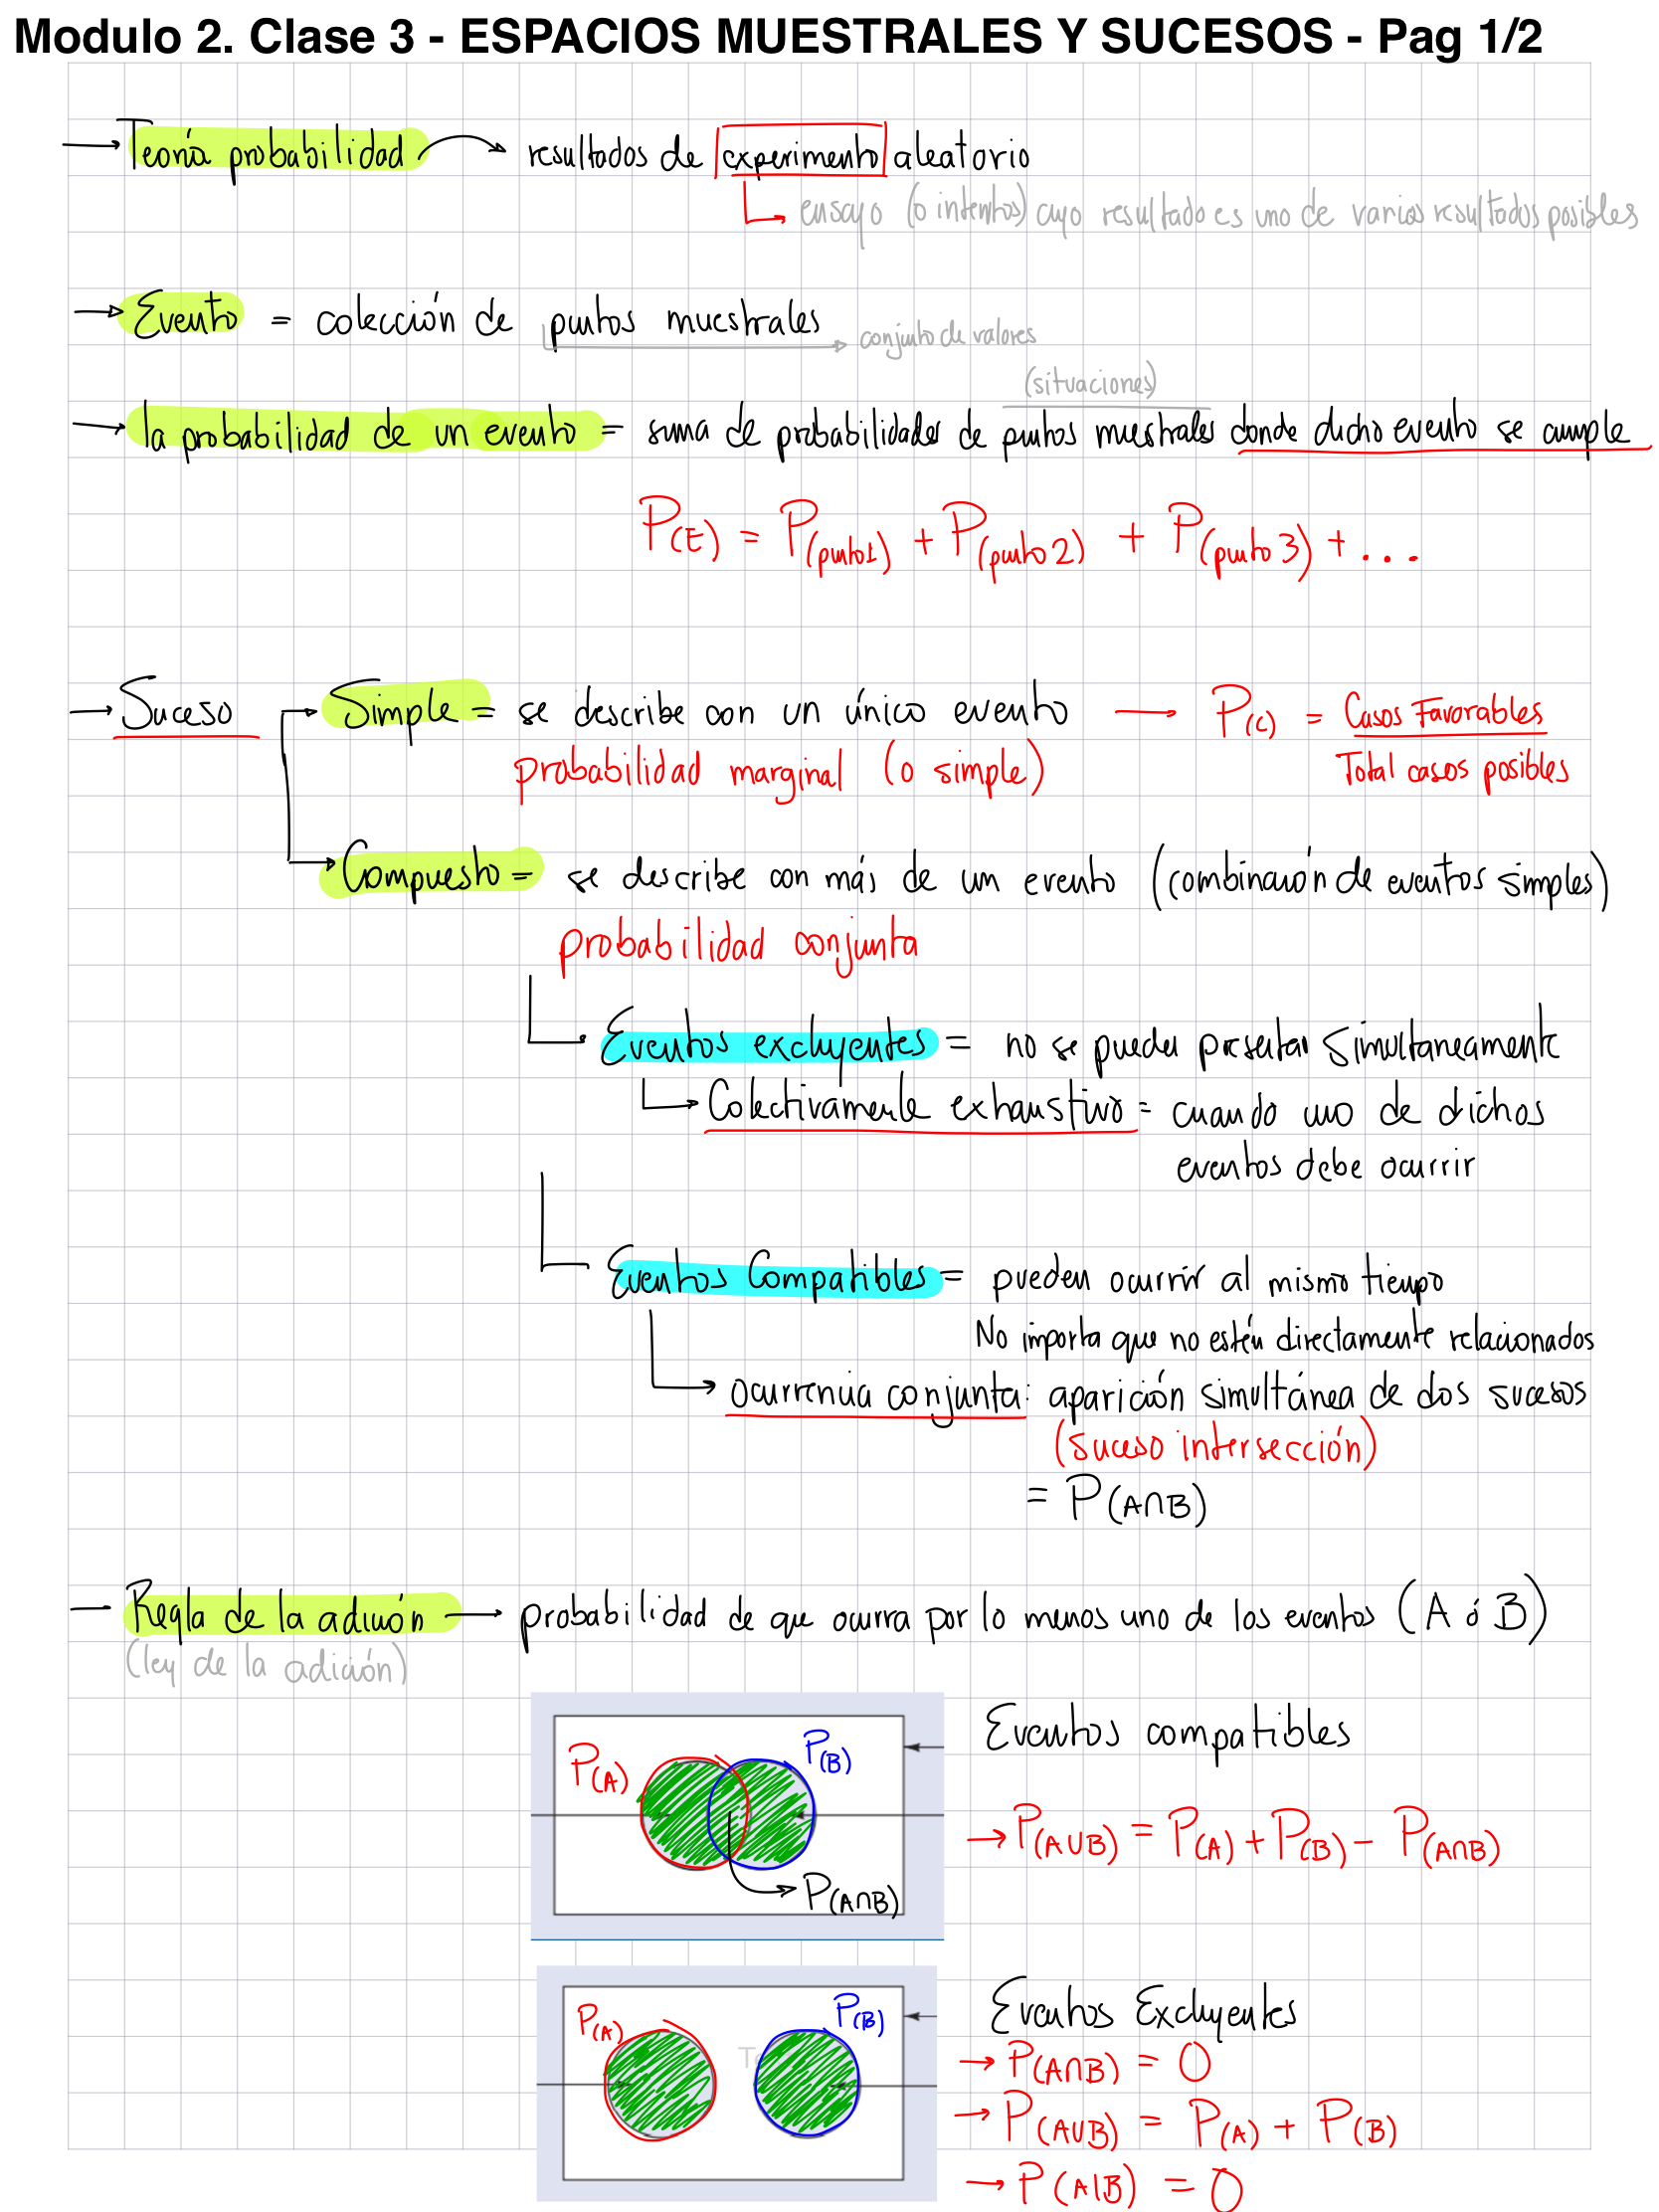 Modulo 2. Clase 3 - ESPACIOS MUESTRALES Y SUCESOS - Pag 1/2
→ Teoría probabilidad → resultados de experimento aleatorio
ensayo (o intentos) cuyo resultado es uno de varios resultados posibles
→ Evento = colección de puntos muestrales
→ conjunto de valores
(situaciones)
→ la probabilidad de un evento = suma de probabilidades de puntos muestrales donde dicho evento se cumple
P(E) = P(punto1) + P(punto 2) + P(punto 3) + ...
→ Suceso → Simple = se describe con un único evento → P(C) = Casos Favorables
probabilidad marginal (o simple) Total casos posibles
→ Compuesto = se describe con más de un evento (combinación de eventos simples)
probabilidad conjunta
Eventos excluyentes = no se pueden presentar simultaneamente
→ Colectivamente exhaustivo = cuando uno de dichos
eventos debe ocurrir
Eventos Compatibles = pueden ocurrir al mismo tiempo
No importa que no estén directamente relacionados
→ ocurrencia conjunta: aparición simultánea de dos sucesos
(suceso intersección)
= P(A∩B)
— Regla de la adición → probabilidad de que ocurra por lo menos uno de los eventos (A ó B)
(ley de la adición)
Eventos compatibles
P(A) P(B)
→ P(A∪B) = P(A) + P(B) - P(A∩B)
P(A∩B)
Eventos Excluyentes
P(A) P(B)
→ P(A∩B) = 0
→ P(A∪B) = P(A) + P(B)
→ P(A|B) = 0